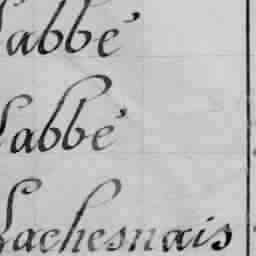 l'abbé
l'abbé
Lachesnais